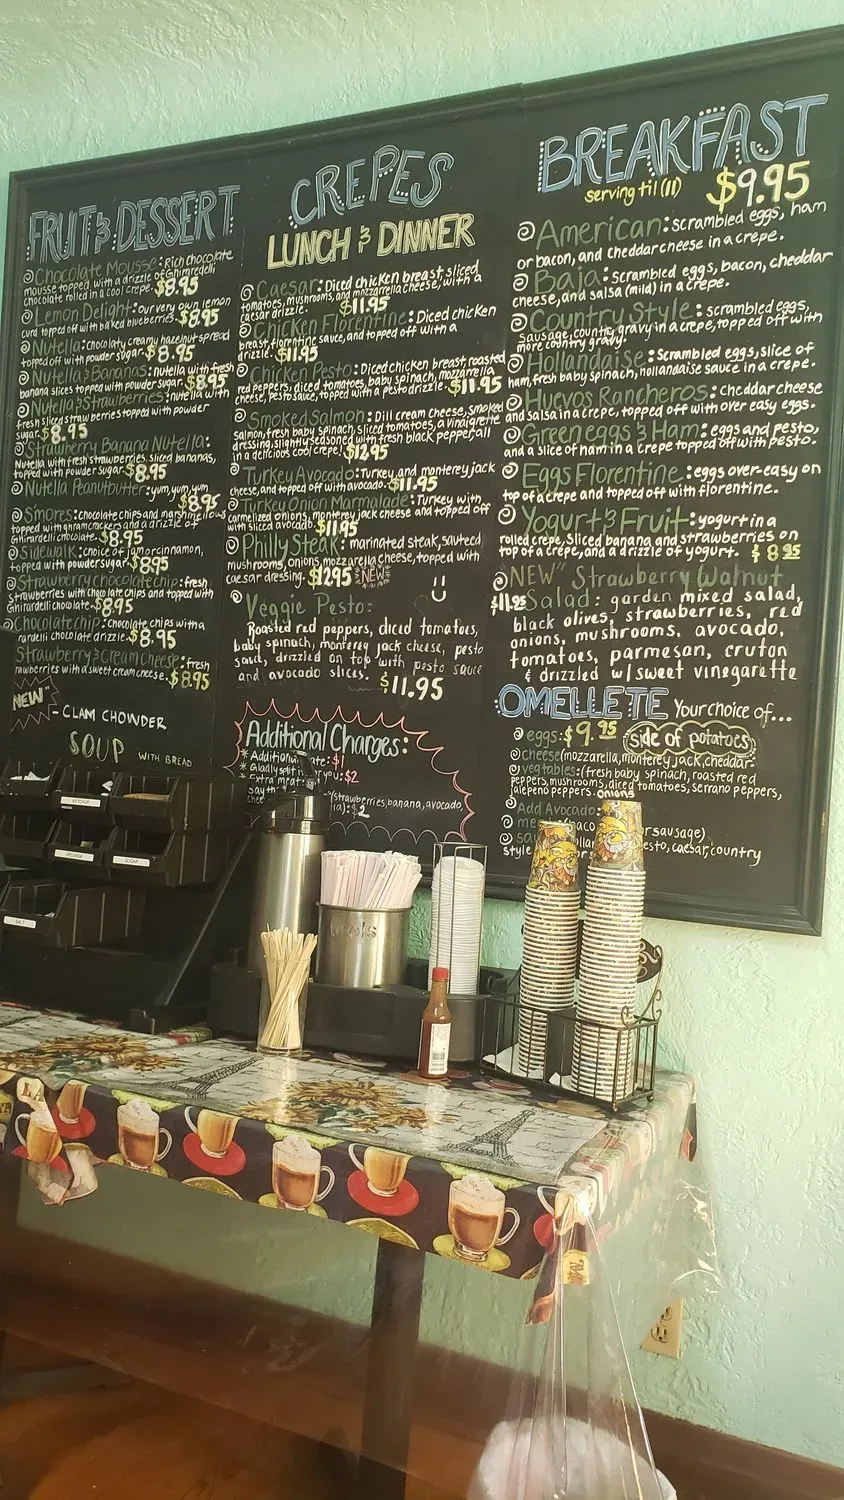 FRUIT & DESSERT
Chocolate Mousse: Rich chocolate
mousse topped with a drizzle of Ghirardelli
chocolate rolled in a cool crepe. $8.95
Lemon Delight: our very own lemon
curd topped off with baked blueberries. $8.95
Nutella: chocolaty creamy hazelnut spread
topped off with powder sugar. $8.95
Nutella & Bananas: nutella with fresh
banana slices topped with powder sugar. $8.95
Nutella & Strawberries: nutella with
fresh sliced strawberries topped with powder
sugar. $8.95
Strawberry Banana Nutella:
Nutella with fresh strawberries, sliced bananas,
topped with powder sugar. $8.95
Nutella Peanutbutter: yum, yum, yum
$8.95
Smores: chocolate chips and marshmellows
topped with and a drizzle of
Ghirardelli chocolate. $8.95
Sidewalk: choice of jam or cinnamon,
topped with powder sugar. $8.95
Strawberry chocolate chip: fresh
strawberries with chocolate chips and topped with
Ghirardelli chocolate. $8.95
Chocolate chip: chocolate chips with a
rardelli chocolate drizzle. $8.95
Strawberry & Cream Cheese: fresh
rawberries with a sweet cream cheese. $8.95
NEW"
- CLAM CHOWDER
SOUP WITH BREAD
CREPES
LUNCH & DINNER
Caesar: Diced chicken breast sliced
tomatoes, mushrooms, and mozzarella cheese, with a
caesar drizzle. $11.95
Chicken Florentine: Diced chicken
breast, florentine sauce, and topped off with a
drizzle. $11.95
Chicken Pesto: Diced chicken breast, roasted
red peppers, diced tomatoes, baby spinach, mozzarella
cheese, pesto sauce, topped with a pesto drizzle. $11.95
Smoked Salmon: Dill cream cheese, smoked
salmon, fresh baby spinach, sliced tomatoes, a vinaigrette
dressing, slightly seasoned with fresh black pepper, all
in a delicious cool crepe. $12.95
Turkey Avocado: Turkey, and monterey jack
cheese, and topped off with avocado. $11.95
Turkey Onion Marmalade: Turkey with
carmelized onions, monterey jack cheese and topped off
with sliced avocado. $11.95
Philly Steak: marinated steak, sauteed
mushrooms, onions, mozzarella cheese, topped with
caesar dressing. $12.95 NEW
Veggie Pesto:
Roasted red peppers, diced tomatoes,
baby spinach, monterey jack cheese, pesto
sauce, drizzled on top with pesto sauce
and avocado slices. $11.95
Additional Charges:
* Additional ate: $1
* Gladly split it you: $2
* Extra meat
Say
(strawberries, banana, avocado,
la): $2
BREAKFAST
serving til (11) $9.95
American: scrambled eggs, ham
or bacon, and cheddar cheese in a crepe.
Baja: scrambled eggs, bacon, cheddar
cheese, and salsa (mild) in a crepe.
Country Style: scrambled eggs,
sausage, country gravy in a crepe, topped off with
more country gravy.
Hollandaise: Scrambled eggs, slice of
ham, fresh baby spinach, hollandaise sauce in a crepe.
Huevos Rancheros: cheddar cheese
and salsa in a crepe, topped off with over easy eggs.
Green eggs & Ham: eggs and pesto,
and a slice of ham in a crepe topped off with pesto.
Eggs Florentine: eggs over-easy on
top of a crepe and topped off with florentine.
Yogurt & Fruit: yogurt in a
rolled crepe, Sliced banana and strawberries on
top of a crepe, and a drizzle of yogurt. $8.95
NEW" Strawberry Walnut
$11.95 Salad: garden mixed salad,
black olives, strawberries, red
onions, mushrooms, avocado,
tomatoes, parmesan, cruton
& drizzled w/ sweet vinegarette
OMELLETE Your choice of...
eggs: $9.95 side of potatoes
cheese (mozzarella, monterey jack, cheddar
vegtables: (fresh baby spinach, roasted red
peppers, mushrooms, diced tomatoes, serrano peppers,
jalepeno peppers onions
Add Avocado:
r sausage)
esto, caesar, country
style
KETCHUP
SPLENDA
SUGAR
SALT